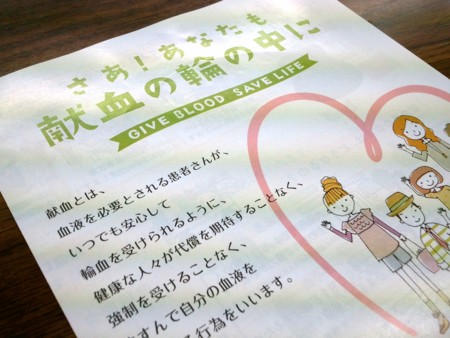 さあ!あなたも
献血の輪の中に
GIVE BLOOD SAVE LIFE
献血とは、
血液を必要とされる患者さんが、
いつでも安心して
輸血を受けられるように、
健康な人々が代償を期待することなく、
強制を受けることなく、
すすんで自分の血液を
る行為をいいます。